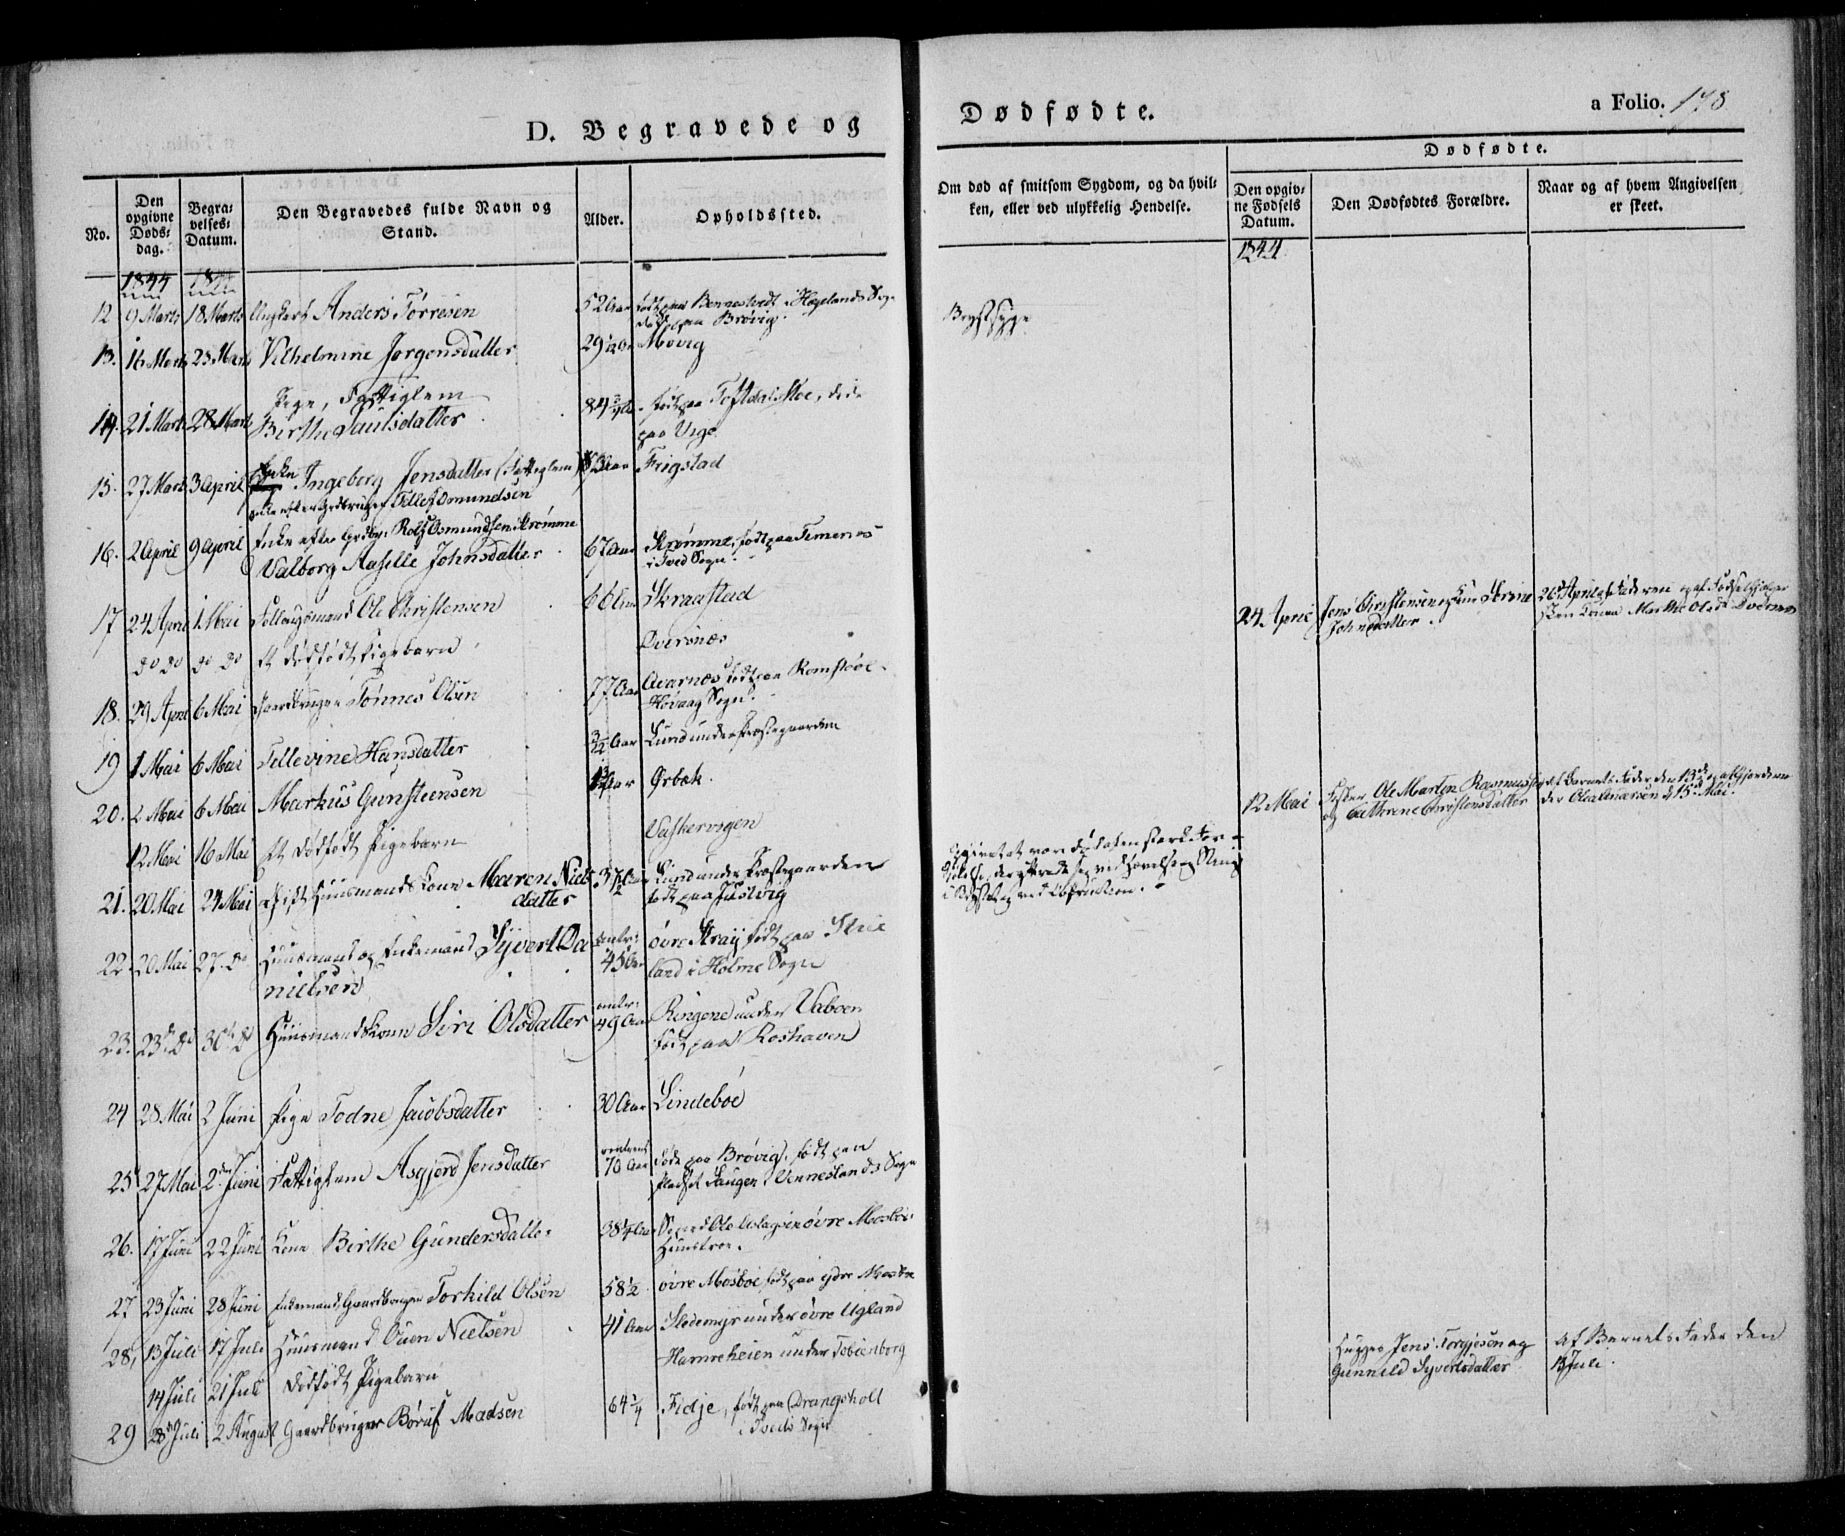 D. Begravede og
Dødfødte.
a Folio. 178
No.
Den opgivne Døds-dag.
Begra-velses-Datum.
Den Begravedes fulde Navn og Stand.
Alder.
Opholdssted.
Om død af smitsom Sygdom, og da hvil-
ken, eller ved ulykkelig Hendelse.
Dødfødte.
Den opgiv-ne Fødsels Datum.
Den Dødfødtes Forældre.
Naar og af hvem Angivelsen
er skeet.
1844 1844
1844
12 9 Marts 18 Marts Anders Tørresen 52 Aar født paa Bennestvedt i Høgelands Sogn
død paa Brøvig.
Brystsyge
13. 16 Marts 23 Marts Vilhelmine Jørgensdatter 29 1/2 Aar Movig
Pige, Fattiglem
14. 21 Marts 28 Marts Birthe Paulsdatter 84 3/4 Aar født paa Toftdal Moe, død
paa Urge
15. 27 Marts 3 April Enke Ingeborg Jensdatter (Fattiglem) Frigstad
Enke efter Grdbruger Tellef Omundsen
Enke efter Grdbr: Rolf Osmundsen Strømme
16. 2 April 9 April Valborg Aaselle Johnsdatter 67 Aar Strømme, født paa Timenes
i Tved Sogn.
17 24 April 1 Mai Føllaugsmand Ole Christensen 66 Aar Skraastad
do do do do Et dødfødt Pigebarn Qversnæs
24 April Jens Christensen og Kone Sirine
Johnsdatter.
26 April af Faderen og af Fødselshjelper
sken Konen Marthe Olsdr Qvernes
18. 29 April 6 Mai Gaardbruger Tønnes Olsen 77 Aar Qvarnæs født paa Romstøl
Høvaag Sogn.
19 1 Mai 6 Mai Tellevine Hansdatter 3 1/2 Aar Lund under Præstegaarden
20. 2 Mai 6 Mai Markus Gunsteensen Aar Ørbæk.
12 Mai 16 Mai Et dødfødt Pigebarn Vaskervigen
12 Mai Fisker Ole Martin Rasmussen
og Cathrine Christensdatter
af Barnets Fader den 13de og af Gjordemo
der Olea Enersen d. 15 Mai.
21. 20 Mai 24 Mai gift Huusmandskone Maren Niels
datter 37 1/2 Aar Lund under Præstegaarden
født paa Justvig
22 20 Mai 27 do Huusmand og Enkemand Syvert Da
nielsen omtr: 45 Aar øvre Stray født paa
land i Holme Sogn
23. 23 do 30te do Huusmandskone Siri Olsdatter omtr: 49 Aar Ringene under Vaboen
født paa Roshaven
24 28 Mai 2 Juni Pige Todne Jacobsdatter 30 Aar Lindebøe
25 27 Mai 2den Juni Fattiglem Asgjerd Jensdatter omtrent 70 Aar død paa Brøvig, født paa
Pladset Haugen i Venneslands Sogn
26. 17 Juni 22 Juni Kone Birthe Gundersdatter 38 1/4 Aar Ole Aslagsen øvre Mosbøe
Huustroe.
27 23 Juni 28 Juni Enkemand, Gaardbruger Torkild Olsen 58 1/2 øvre Mosbøe født paa ydre Mosbøe
28, 13 Juli 17 Juli Huusmand Ouen Nielsen 41 Aar Slodemyr under øvre Ugland
14 Juli 21 Juli Dødfødt Pigebarn Hamreheien under Tobienborg
Hugger Jens Torgjesen og
Gunneld Syvertsdatter
af Barnets Fader den
18 Juli.
29 28 Juli 2 August Gaardbruger Børuf Madsen 64 1/4 Fidje, født paa Drangsholt
i Tveds Sogn